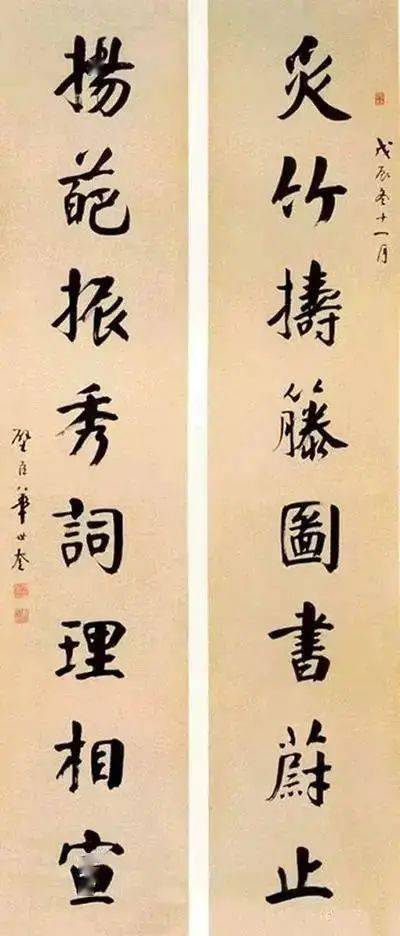 戊辰冬十一月
炎竹擣籐圖書蔚止
揚葩振秀詞理相宣
璧臣華世奎